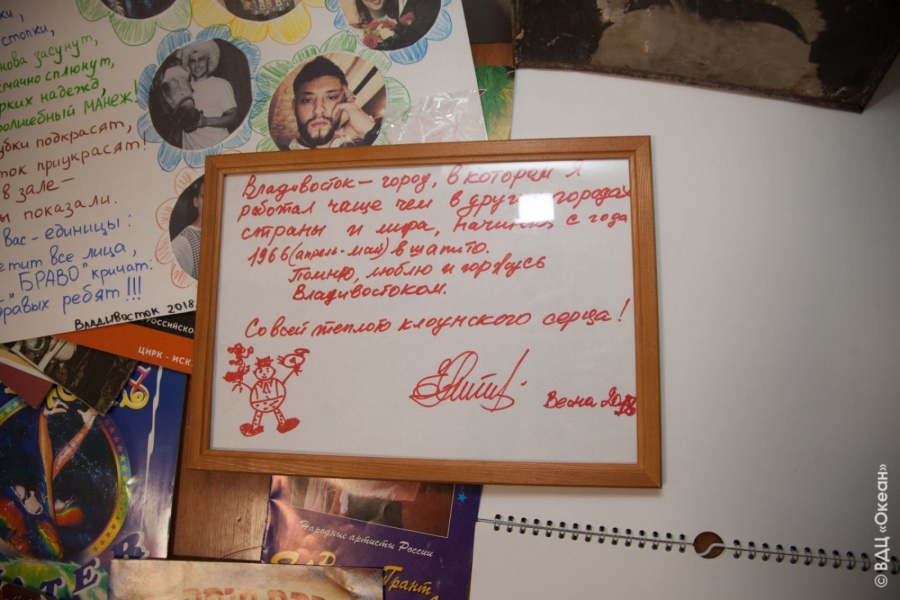 стопки,
засунут,
сплюнут,
надежд,
МАНеЖ!
подкрасят,
приукрасят!
в зале –
показали.
вас - единицы:
все лица,
"БРАВО" кричат:
ребят!!!
Владивосток 2018
РОССИЙСКО
ЦИРК - ИСК
Владивосток – город, в котором я
работал чаще чем в других городах
страны и мира, начиная с года
1966 (апрель - май) в шапито.
Помню, люблю и горжусь
Владивостоком.
Со всей теплотою клоунского серца!
Весна 2018
Народные артисты России
Грант
© ВДЦ «Океан»